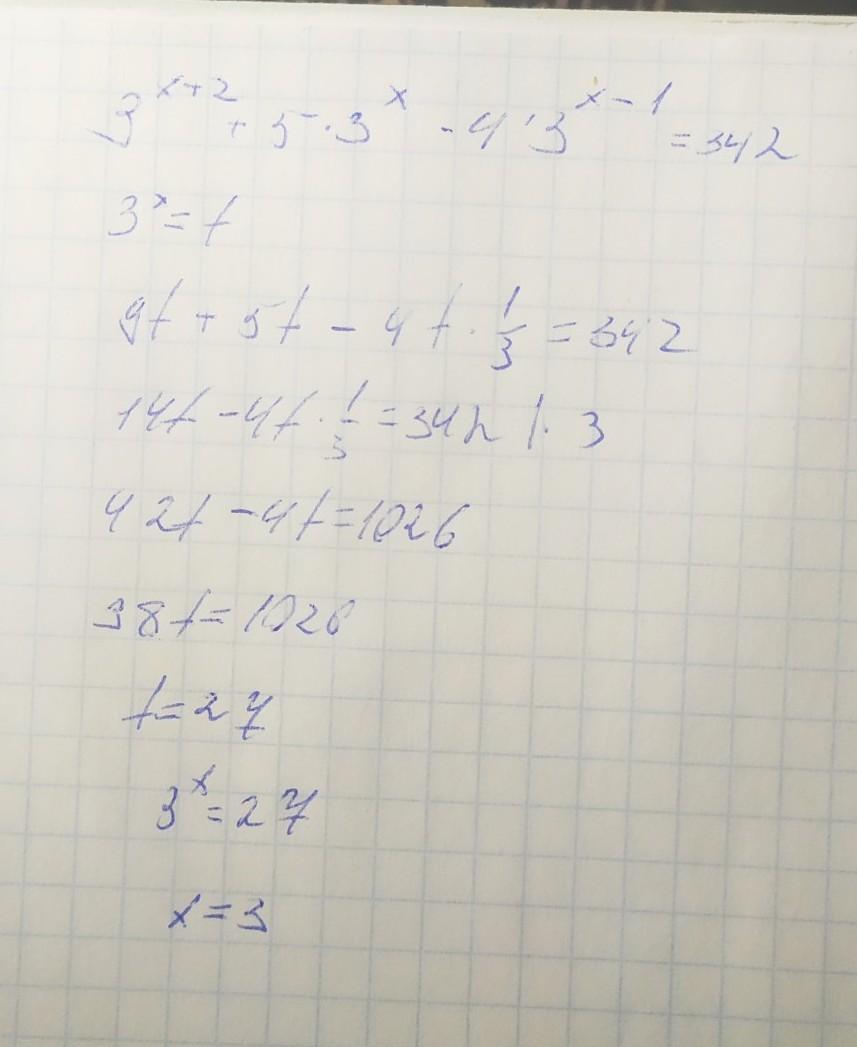 3^(x+2) + 5·3^x - 4·3^(x-1) = 342
3^x = t
9t + 5t - 4t · 1/3 = 342
14t - 4t · 1/3 = 342 |· 3
42t - 4t = 1026
38t = 1026
t = 27
3^x = 27
x = 3